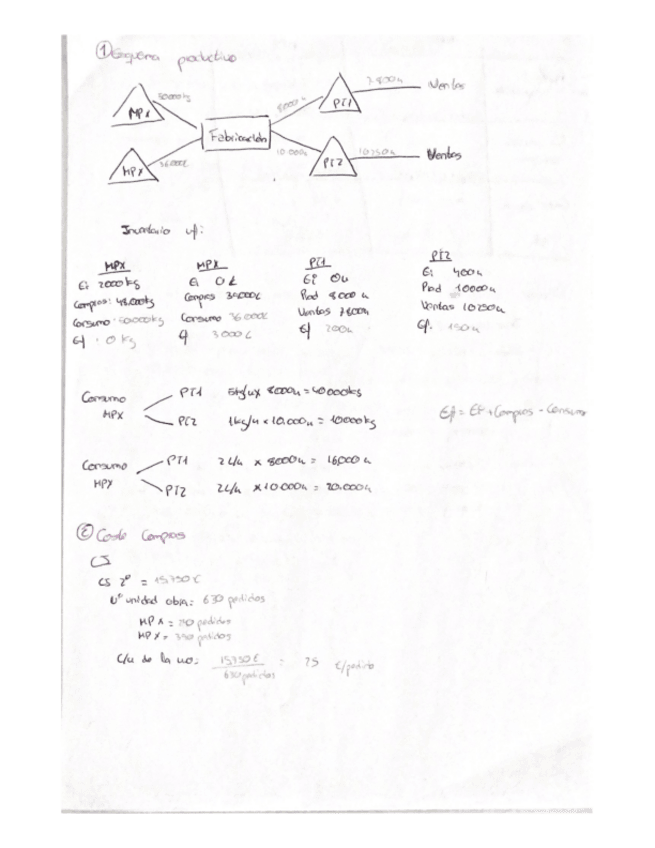 ① Esquema productivo
50000kg
MPX
36.000L
MPX
Fabricación
8000u
10.000u
PT1
7800u
Ventas
PT2
10250u
Ventas
Inventario uf:
MPX
Ei 2000 kg
Compras: 48.000kg
Consumo: 50.000kg
Ef: 0 kg
MPX
Ei 0 L
Consumo 36.000L
Ef 3000 L
PT1
Ei 0u
Prod 8000 u
Ventas 7800u
Ef 200u
PT2
Ei 400u
Prod 10000u
Ventas 10250u
Ef: 150u
Consumo MPX
PT1 5kg/u x 8000u = 40000kg
PT2 1kg/u x 10.000u = 10000kg
Ef = Ei + Compras - Consumo
Consumo MPX
PT1 2L/u x 8000u = 16.000u
PT2 2L/u x 10.000u = 20.000u
② Coste Compras
CS
CS 2º = 15.750€
Nº unidad obra: 630 pedidos
MPX = pedidos
MPX = pedidos
C/u de la uo: 15750€ / 630 pedidos = 25 €/pedido